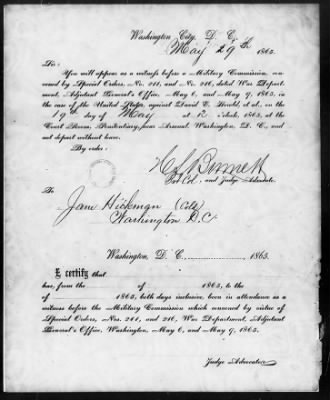 Washington City, D. C.
May 29th 1865.
To:
You will appear as a witness before a Military Commission, con-
vened by Special Orders, No. 211, and No. 216, dated War Depart-
ment, Adjutant General's Office, May 6, and May 9, 1865, in
the case of the United States against David E. Herold, et al., on the
19th day of May at o'clock, 1865, at the
Court Room, Penitentiary, near Arsenal, Washington, D. C., and
not depart without leave.
By order:
H L Burnett
Bvt Col. and Judge Advocate.
To
Jane Hickman (Cold)
Washington D.C.
Washington, D. C. 1865.
I certify that
has, from the of 1865, to the
of 1865, both days inclusive, been in attendance as a
witness before the Military Commission which convened by virtue of
Special Orders, Nos. 211, and 216, War Department, Adjutant
General's Office, Washington, May 6, and May 9, 1865.
Judge Advocate.